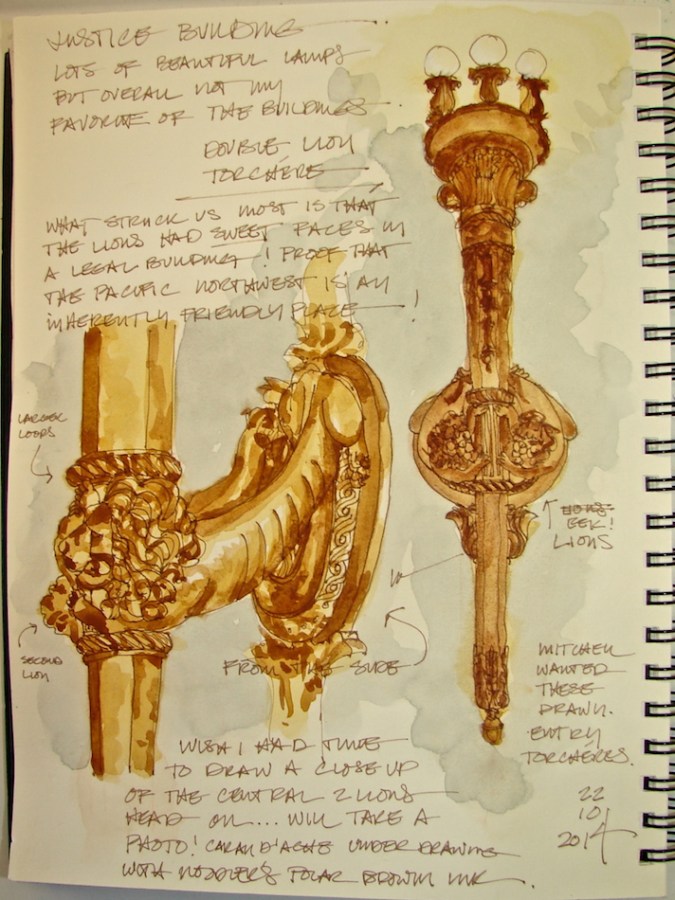 JUSTICE BUILDING
LOTS OF BEAUTIFUL LAMPS
BUT OVERALL NOT MY
FAVORITE OF THE BUILDINGS.
DOUBLE LION
TORCHÉRE
WHAT STRUCK US MOST IS THAT
THE LIONS HAD SWEET FACES IN
A LEGAL BUILDING! PROOF THAT
THE PACIFIC NORTHWEST IS AN
INHERENTLY FRIENDLY PLACE!
LARGER
LOOPS
EEK!
LIONS
SECOND
LION
FROM THE SIDE
MITCHELL
WANTED
THESE
DRAWN.
ENTRY
TORCHÉRES.
WISH I HAD TIME
TO DRAW A CLOSE UP
OF THE CENTRAL 2 LIONS
HEAD ON... WILL TAKE A
PHOTO! CARAN D'ACHE UNDER DRAWING
WITH NOODLER'S POLAR BROWN INK.
22
10
2014